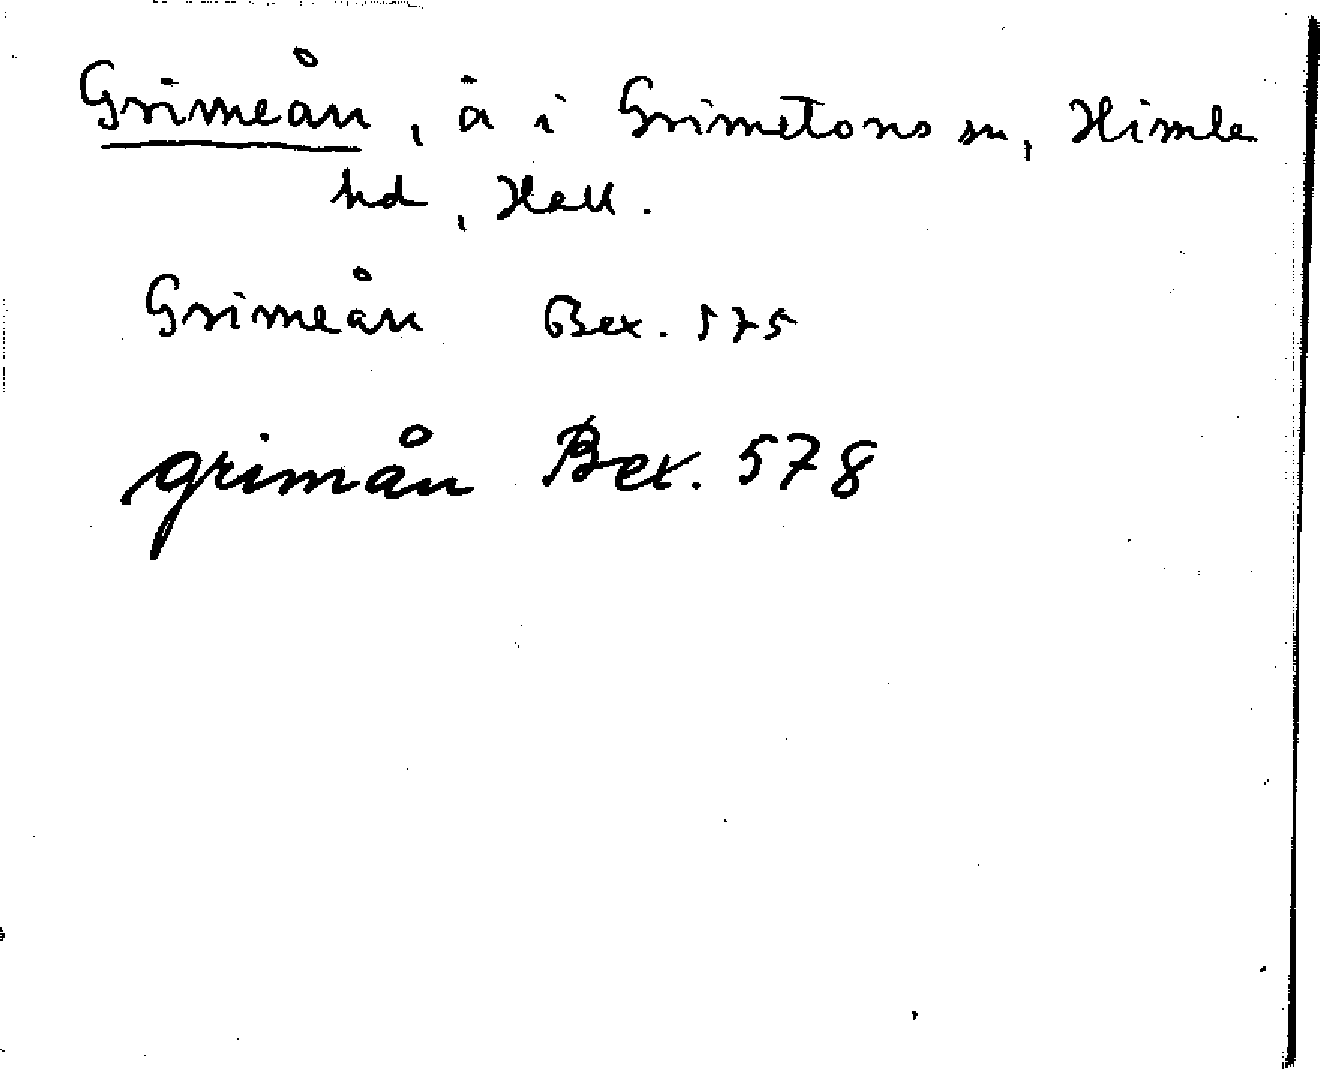 Grimeån, å i Grimetons sn, Himle
hd, Hall.
Grimeån Bex. 575
grimån Bex. 578